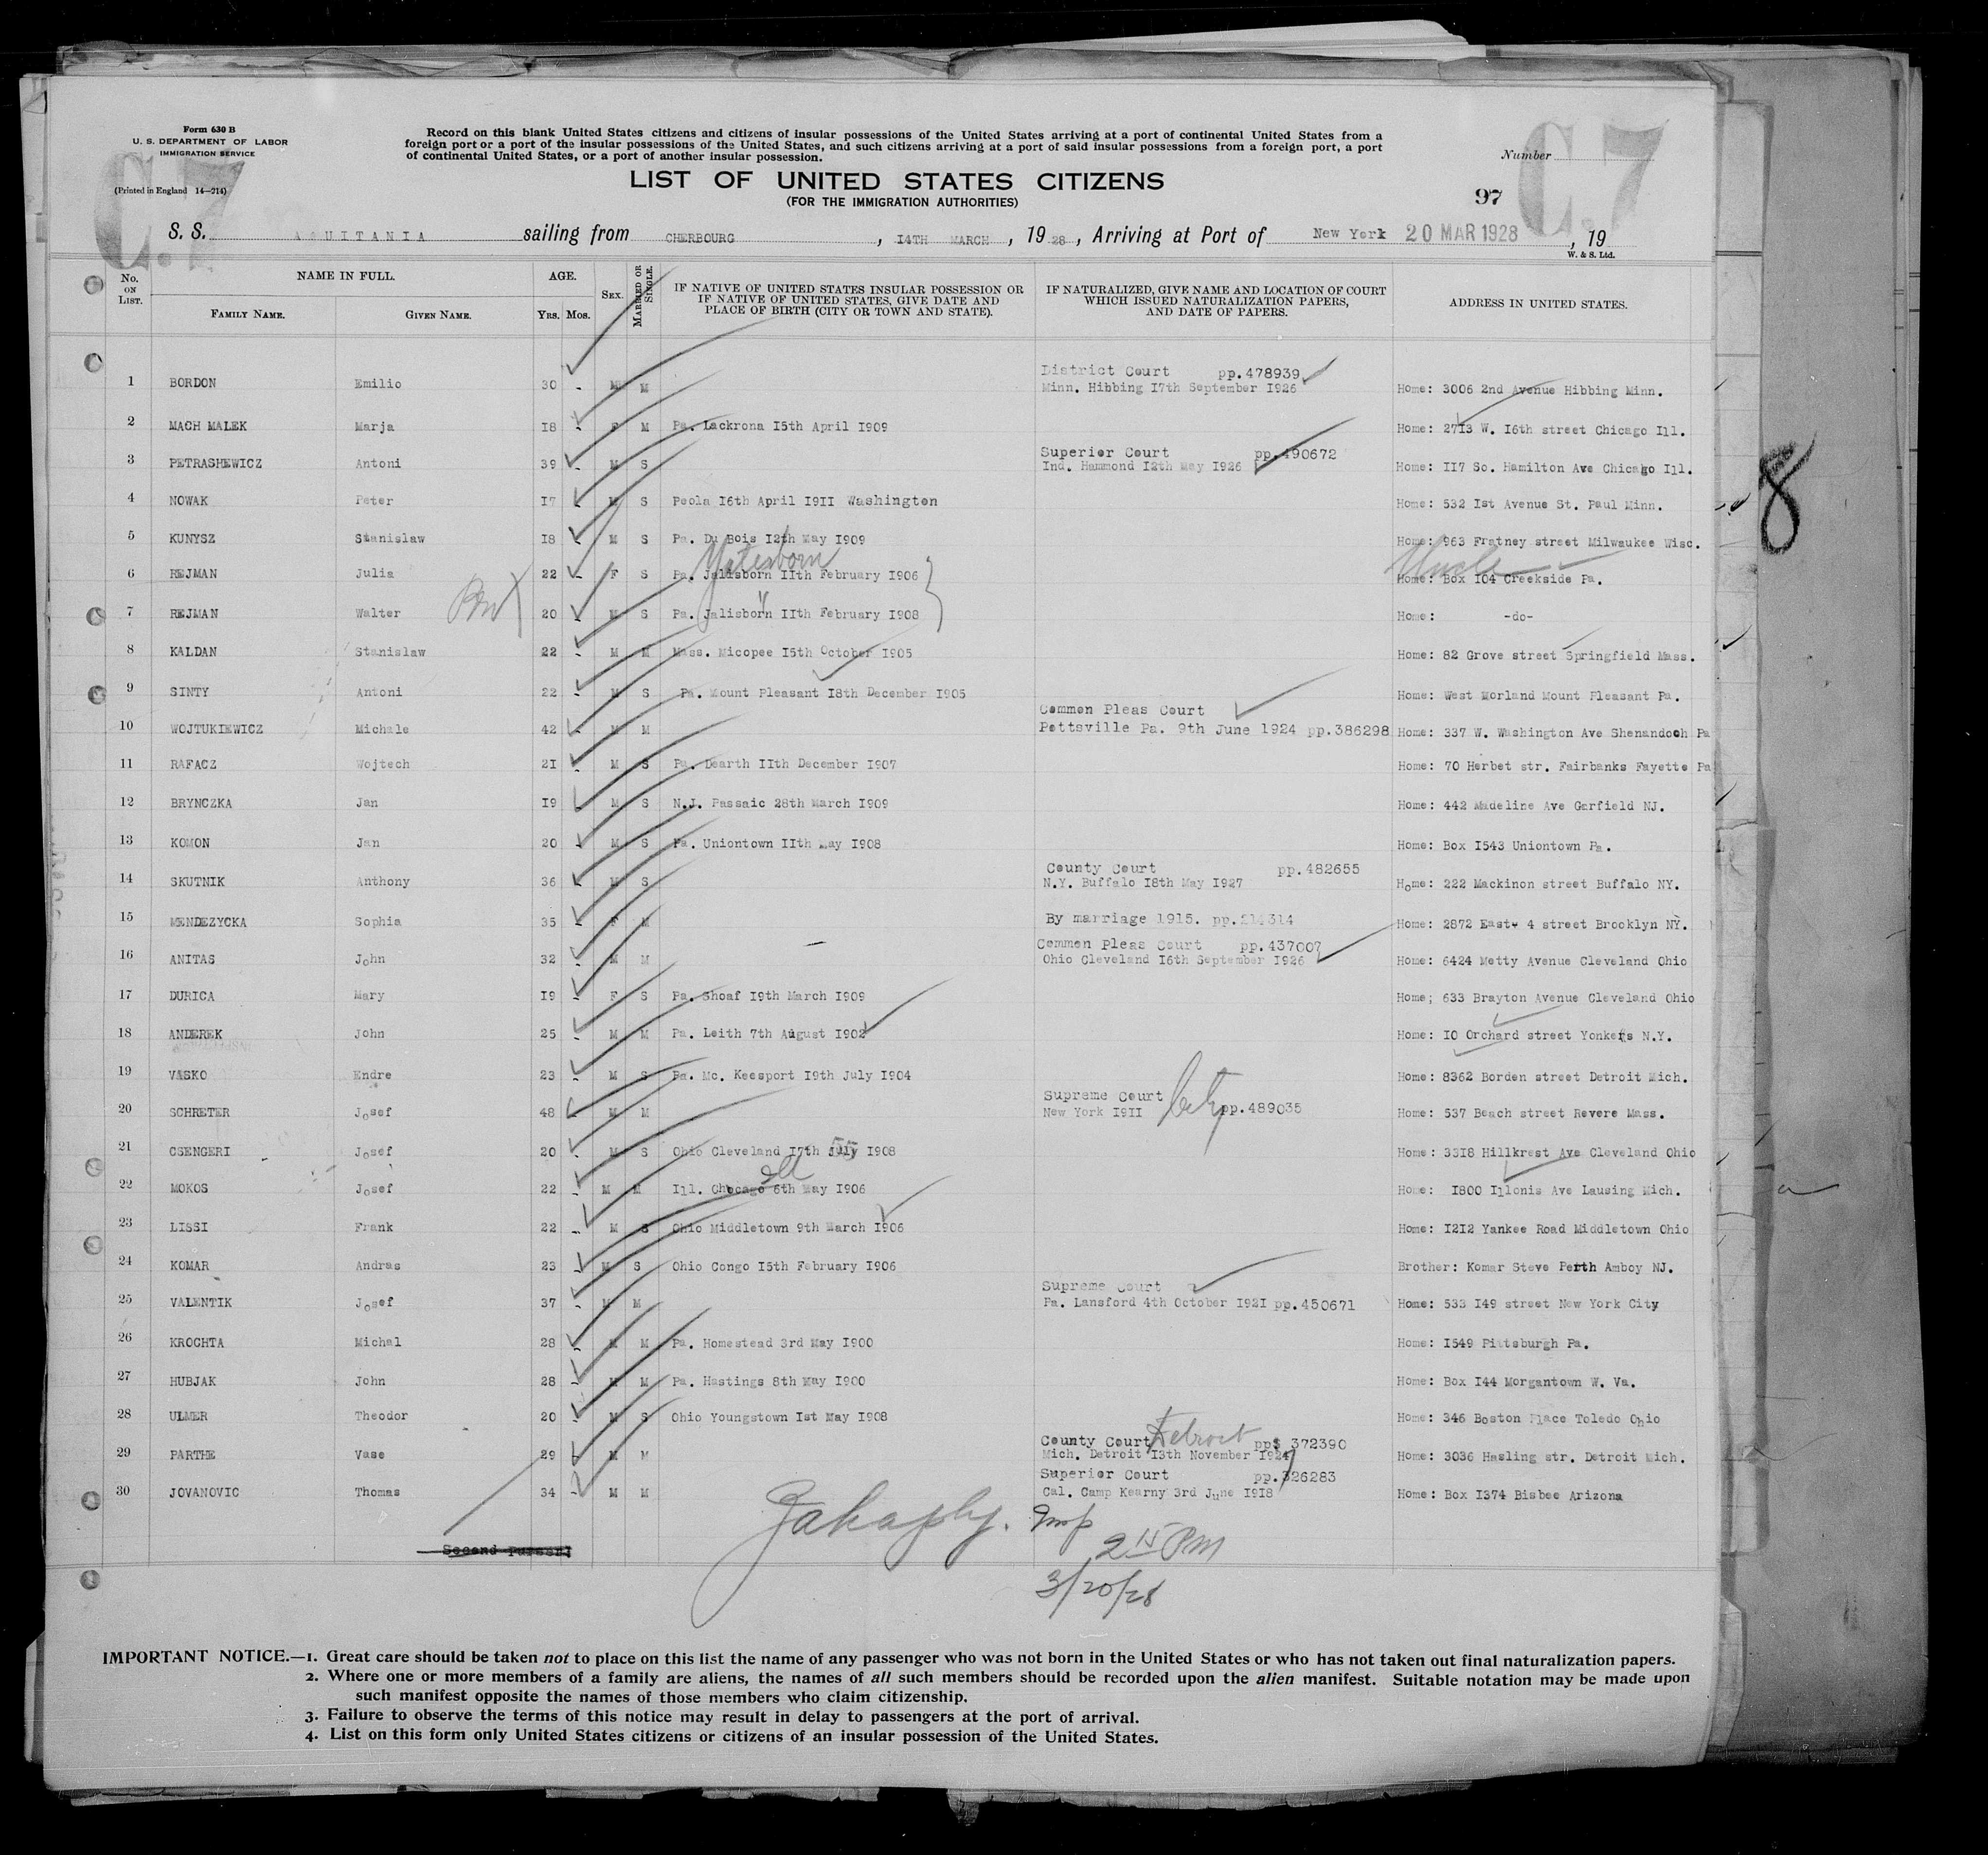 Form 630 B
U. S. DEPARTMENT OF LABOR
IMMIGRATION SERVICE
(Printed in England 14—214)
Record on this blank United States citizens and citizens of insular possessions of the United States arriving at a port of continental United States from a
foreign port or a port of the insular possessions of the United States, and such citizens arriving at a port of said insular possessions from a foreign port, a port
of continental United States, or a port of another insular possession.
Number
C.7 C.7
LIST OF UNITED STATES CITIZENS
(FOR THE IMMIGRATION AUTHORITIES)
97
S. S. AQUITANIA sailing from CHERBOURG, I4TH MARCH, 19 28, Arriving at Port of New York 20 MAR 1928, 19
W. & S. Ltd.
No. ON LIST. NAME IN FULL. FAMILY NAME. GIVEN NAME. AGE. YRS. MOS. SEX. MARRIED OR SINGLE. IF NATIVE OF UNITED STATES INSULAR POSSESSION OR IF NATIVE OF UNITED STATES, GIVE DATE AND PLACE OF BIRTH (CITY OR TOWN AND STATE). IF NATURALIZED, GIVE NAME AND LOCATION OF COURT WHICH ISSUED NATURALIZATION PAPERS, AND DATE OF PAPERS. ADDRESS IN UNITED STATES.
District Court pp.478939
1 BORDON Emilio 30 - M M Minn. Hibbing I7th September I926 Home: 3006 2nd Avenue Hibbing Minn.
2 MACH MALEK Marja I8 - F M Pa. Lackrona I5th April I909 Home: 27I3 W. I6th street Chicago Ill.
Superior Court pp.490672
3 PETRASHEWICZ Antoni 39 - M S Ind. Hammond I2th May I926 Home: II7 So. Hamilton Ave Chicago Ill.
4 NOWAK Peter I7 - M S Peola I6th April I9II Washington Home: 532 Ist Avenue St. Paul Minn.
5 KUNYSZ Stanislaw I8 - M S Pa. Du Bois I2th May I909 Home: 963 Fratney street Milwaukee Wisc.
Yatesborn Uncle
6 REJMAN Julia 22 - F S Pa. Jalisborn IIth February I906 Home: Box I04 Creekside Pa.
7 REJMAN Walter 20 - M S Pa. Jalisborn IIth February I908 Home: -do-
8 KALDAN Stanislaw 22 - M M Mass. Micopee I5th October I905 Home: 82 Grove street Springfield Mass.
9 SINTY Antoni 22 - M S Pa. Mount Pleasant I8th December I905 Home: West Morland Mount Pleasant Pa.
Common Pleas Court
10 WOJTUKIEWICZ Michale 42 - M M Pottsville Pa. 9th June 1924 pp.386298 Home: 337 W. Washington Ave Shenandoch Pa
11 RAFACZ Wojtech 2I - M S Pa. Dearth IIth December I907 Home: 70 Herbet str. Fairbanks Fayette Pa
12 BRYNCZKA Jan I9 - M S N.J. Passaic 28th March I909 Home: 442 Madeline Ave Garfield NJ.
13 KOMON Jan 20 - M S Pa. Uniontown IIth May I908 Home: Box I543 Uniontown Pa.
County Court pp.482655
14 SKUTNIK Anthony 36 - M S N.Y. Buffalo I8th May I927 Home: 222 Mackinon street Buffalo NY.
15 MENDEZYCKA Sophia 35 - F M By marriage 1915. pp.214314 Home: 2872 East 4 street Brooklyn NY.
Common Pleas Court pp.437007
16 ANITAS John 32 - M M Ohio Cleveland I6th September I926 Home: 6424 Metty Avenue Cleveland Ohio
17 DURICA Mary I9 - F S Pa. Shoaf I9th March I909 Home; 633 Brayton Avenue Cleveland Ohio
18 ANDEREK John 25 - M M Pa. Leith 7th August I902 Home: IO Orchard street Yonkers N.Y.
19 VASKO Endre 23 - M S Pa. Mc. Keesport I9th July I904 Home: 8362 Borden street Detroit Mich.
Supreme Court
20 SCHRETER Josef 48 - M M New York I9II pp.489035 Home: 537 Beach street Revere Mass.
21 CSENGERI Josef 20 - M S Ohio Cleveland I7th July I908 Home: 33I8 Hillkrest Ave Cleveland Ohio
22 MOKOS Josef 22 - M M Ill. Chocago 6th May I906 Home: I800 Illonis Ave Lausing Mich.
23 LISSI Frank 22 - M S Ohio Middletown 9th March I906 Home: I2I2 Yankee Road Middletown Ohio
24 KOMAR Andras 23 - M S Ohio Congo I5th February I906 Brother: Komar Steve Perth Amboy NJ.
Supreme Court
25 VALENTIK Josef 37 - M M Pa. Lansford 4th October I92I pp.450671 Home: 533 I49 street New York City
26 KROCHTA Michal 28 - M M Pa. Homestead 3rd May I900 Home: I549 Pittsburgh Pa.
27 HUBJAK John 28 - M M Pa. Hastings 8th May I900 Home: Box I44 Morgantown W. Va.
28 ULMER Theodor 20 - M S Ohio Youngstown Ist May I908 Home: 346 Boston Place Toledo Ohio
County Court Detroit pp$ 372390
29 PARTHE Vase 29 - M M Mich. Detroit I3th November I924 Home: 3036 Hasling str. Detroit Mich.
Superior Court pp.326283
30 JOVANOVIC Thomas 34 - M M Cal. Camp Kearny 3rd June I9I8 Home: Box I374 Bisbee Arizona
Insp
2 15 PM
3/20/28
8
IMPORTANT NOTICE.—1. Great care should be taken not to place on this list the name of any passenger who was not born in the United States or who has not taken out final naturalization papers.
2. Where one or more members of a family are aliens, the names of all such members should be recorded upon the alien manifest. Suitable notation may be made upon
such manifest opposite the names of those members who claim citizenship.
3. Failure to observe the terms of this notice may result in delay to passengers at the port of arrival.
4. List on this form only United States citizens or citizens of an insular possession of the United States.